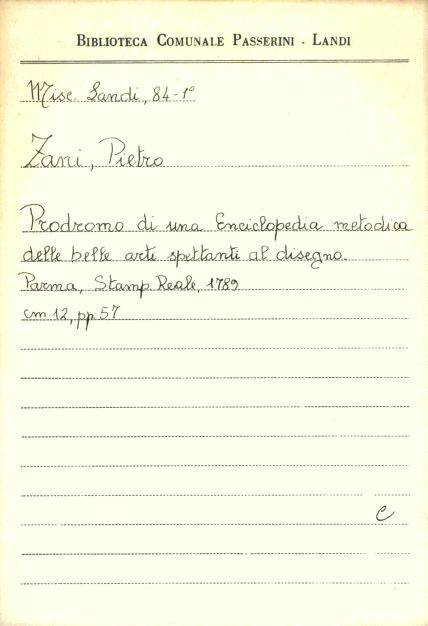 BIBLIOTECA COMUNALE PASSERINI - LANDI
Misc. Landi, 84-1º
Zani, Pietro
Prodromo di una Enciclopedia metodica
delle belle arti spettanti al disegno.
Parma, Stamp. Reale, 1789
cm. 12, pp. 57
C